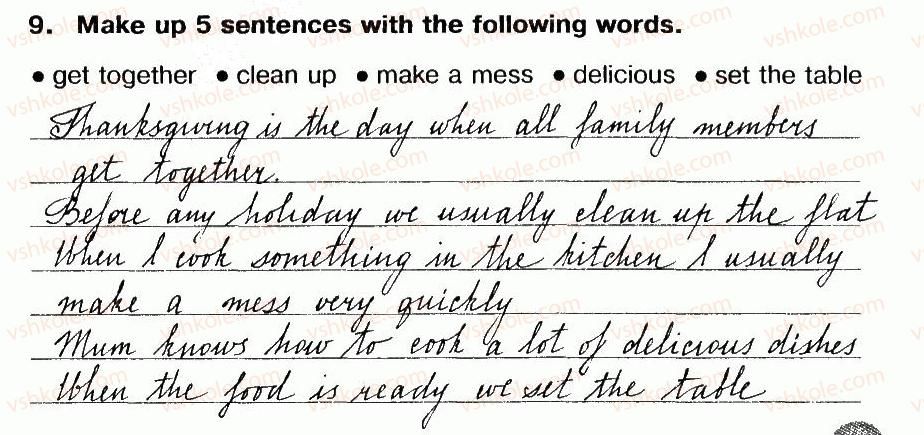 9. Make up 5 sentences with the following words.
• get together • clean up • make a mess • delicious • set the table
Thanksgiving is the day when all family members
get together.
Before any holiday we usually clean up the flat
When I cook something in the kitchen I usually
make a mess very quickly
Mum knows how to cook a lot of delicious dishes
When the food is ready we set the table